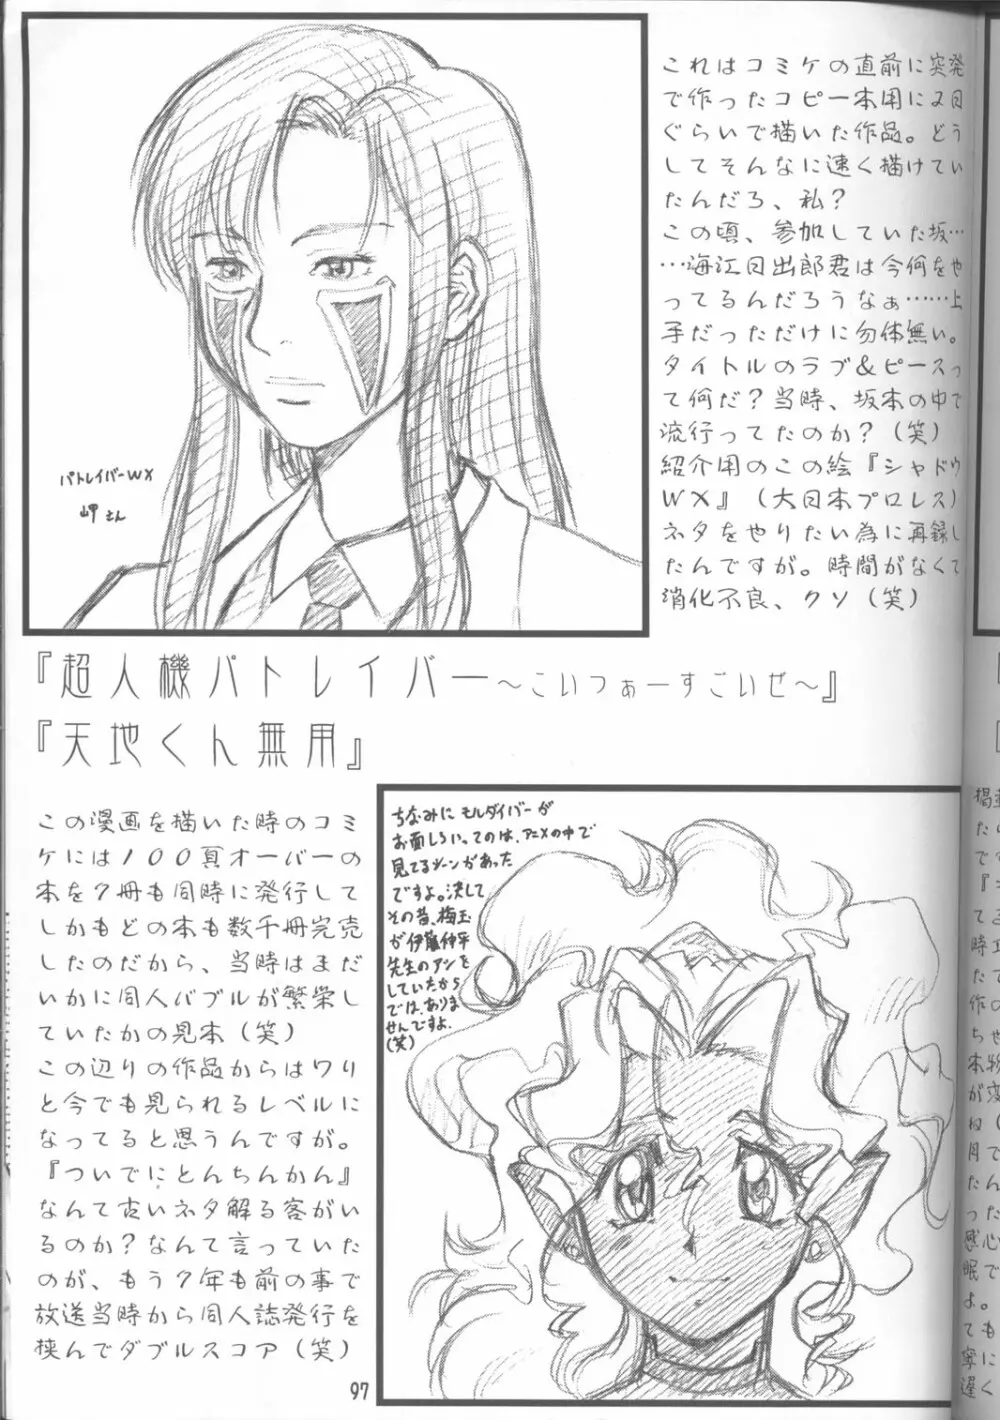 これはコミケの直前に突発
で作ったコピー本用に2日
ぐらいで描いた作品。どう
してそんなに速く描けてい
たんだろ、私?
この頃、参加していた坂…
…海江日出郎君は今何をや
ってるんだろうなぁ……上
手だっただけに勿体無い。
タイトルのラブ&ピースっ
て何だ?当時、坂本の中で
流行ってたのか?(笑)
紹介用のこの絵『シャドウ
WX』(大日本プロレス)
ネタをやりたい為に再録し
たんですが。時間がなくて
消化不良、クソ(笑)
パトレイバーWX
岬さん
『超人機パトレイバー〜こいつぁーすごいぜ〜』
『天地くん無用』
この漫画を描いた時のコミ
ケには100頁オーバーの
本を7冊も同時に発行して
しかもどの本も数千冊完売
したのだから、当時はまだ
いかに同人バブルが繁栄し
ていたかの見本(笑)
この辺りの作品からはワリ
と今でも見られるレベルに
なってると思うんですが。
『ついでにとんちんかん』
なんて古いネタ解る客がい
るのか?なんて言っていた
のが、もう7年も前の事で
放送当時から同人誌発行を
挟んでダブルスコア(笑)
ちなみにモルダイバーが
お面しろいってのは、アニメの中で
見てるシーンがあった
ですよ。決して
その昔、梅玉
が伊藤伸平
先生のアシを
していたから
では、ありま
せんですよ.
(笑)
97